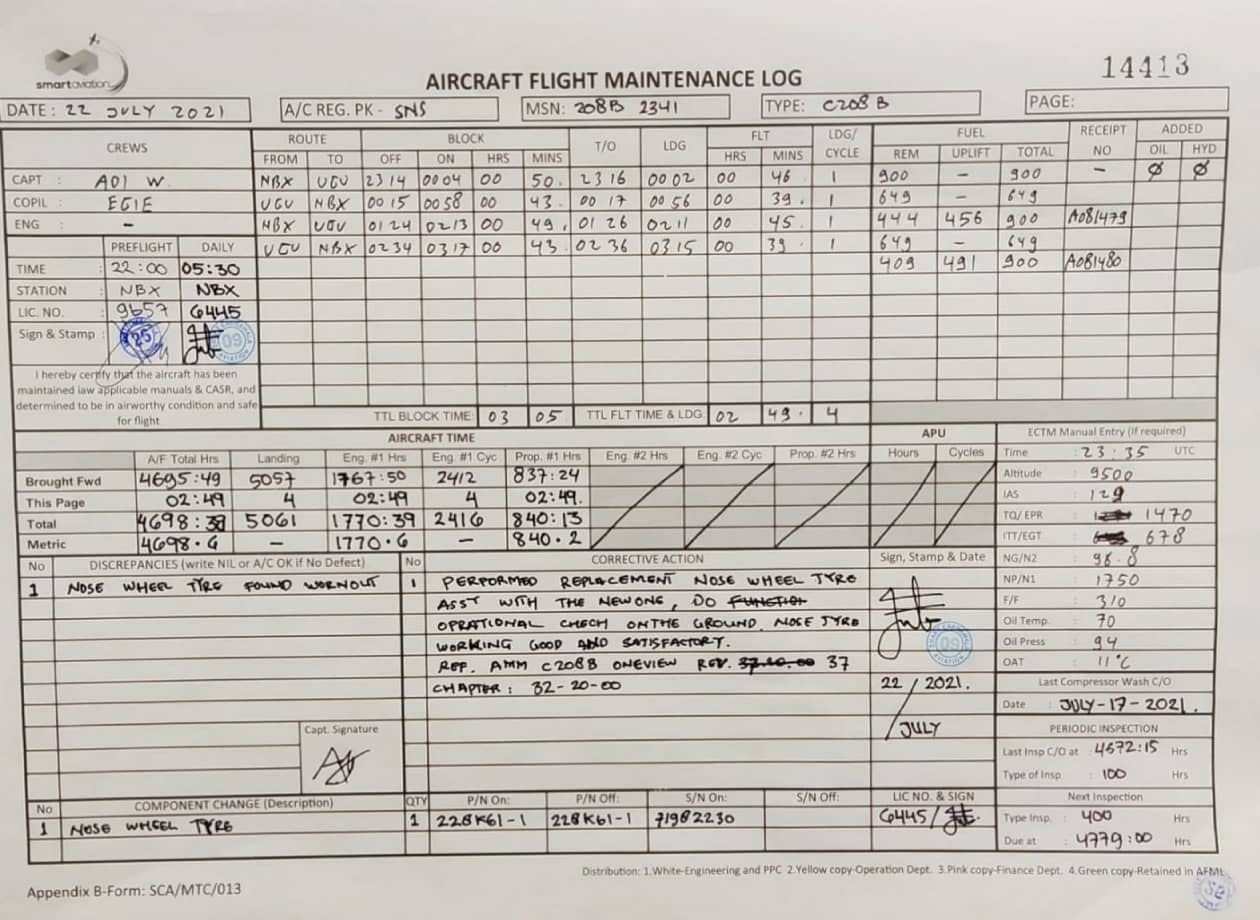 smartaviation
AIRCRAFT FLIGHT MAINTENANCE LOG
14413
DATE : 22 JULY 2021 A/C REG. PK - SNS MSN: 208B 2341 TYPE: C208B PAGE:
CREWS ROUTE BLOCK T/O LDG FLT LDG/ CYCLE FUEL RECEIPT NO ADDED
FROM TO OFF ON HRS MINS HRS MINS REM UPLIFT TOTAL OIL HYD
CAPT : ADI W. NBX UGU 23 14 00 04 00 50. 23 16 00 02 00 46. 1 900 – 900 – Ø Ø
COPIL : EGIE UGU NBX 00 15 00 58 00 43. 00 17 00 56 00 39. 1 649 – 649
ENG : – NBX UGU 01 24 02 13 00 49. 01 26 02 11 00 45. 1 444 456 900 A081479
UGU NBX 02 34 03 17 00 43. 02 36 03 15 00 39. 1 649 – 649
409 491 900 A081480
PREFLIGHT DAILY
TIME : 22:00 05:30
STATION : NBX NBX
LIC. NO. : 9657 6445
Sign & Stamp : 25 09
I hereby certify that the aircraft has been
maintained iaw applicable manuals & CASR, and
determined to be in airworthy condition and safe
for flight
TTL BLOCK TIME: 03 05 TTL FLT TIME & LDG: 02 49. 4
AIRCRAFT TIME APU
A/F Total Hrs Landing Eng. #1 Hrs Eng. #1 Cyc Prop. #1 Hrs Eng. #2 Hrs Eng. #2 Cyc Prop. #2 Hrs Hours Cycles
Brought Fwd 4695:49 5057 1767:50 2412 837:24
This Page 02:49 4 02:49 4 02:49.
Total 4698:38 5061 1770:39 2416 840:13
Metric 4698.6 – 1770.6 – 840.2
ECTM Manual Entry (If required)
Time : 23:35 UTC
Altitude : 9500
IAS : 129
TQ/ EPR : 1470
ITT/EGT : 678
NG/N2 : 96.8
NP/N1 : 1750
F/F : 310
Oil Temp. : 70
Oil Press : 94
OAT : 11°C
Last Compressor Wash C/O
Date : JULY-17-2021.
PERIODIC INSPECTION
Last Insp C/O at : 4672:15 Hrs
Type of Insp : 100 Hrs
Next Inspection
Type Insp. : 400 Hrs
Due at : 4779:00 Hrs
No DISCREPANCIES (write NIL or A/C OK if No Defect) No CORRECTIVE ACTION Sign, Stamp & Date
1 NOSE WHEEL TYRE FOUND WORNOUT 1 PERFORMED REPLACEMENT NOSE WHEEL TYRE
ASSY WITH THE NEW ONE, DO FUNCTION
OPRATIONAL CHECH ONTHE GROUND. NOSE TYRE
WORKING GOOD AND SATISFACTORY.
REF. AMM C208B ONEVIEW REV. 32.20.00 37
CHAPTER : 32-20-00
09
22 / 2021.
JULY
Capt. Signature
No COMPONENT CHANGE (Description) QTY P/N On: P/N Off: S/N On: S/N Off: LIC NO. & SIGN
1 NOSE WHEEL TYRE 1 228K61-1 228K61-1 71982230 6445/
Distribution: 1.White-Engineering and PPC 2.Yellow copy-Operation Dept. 3.Pink copy-Finance Dept. 4.Green copy-Retained in AFML
Appendix B-Form: SCA/MTC/013